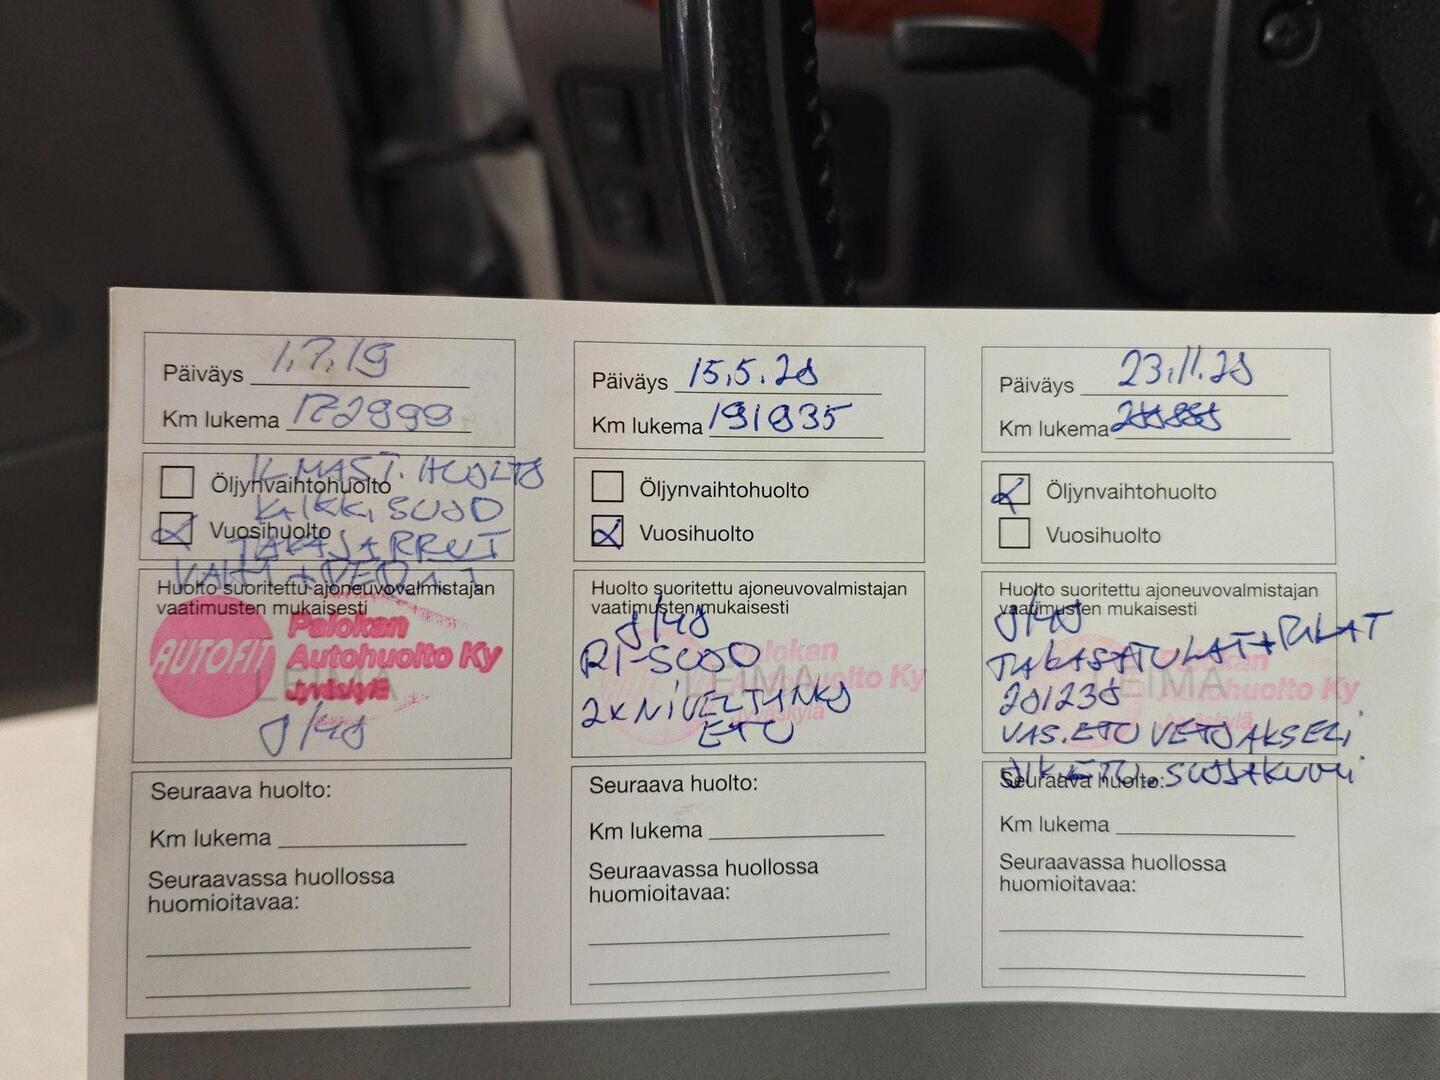 Päiväys 1.7.19
Km lukema 172999
ILMAST. HUOLTO
Öljynvaihtohuolto
KAIKKI SUOD
Vuosihuolto
TAKAJARRUT
Huolto suoritettu ajoneuvovalmistajan
vaatimusten mukaisesti
AUTOFIT
Palokan
Autohuolto Ky
Jyväskylä
LEIMA
Seuraava huolto:
Km lukema
Seuraavassa huollossa
huomioitavaa:
Päiväys 15.5.20
Km lukema 191035
Öljynvaihtohuolto
Vuosihuolto
Huolto suoritettu ajoneuvovalmistajan
vaatimusten mukaisesti
RI-SUOD
Palokan
Autohuolto Ky
Jyväskylä
LEIMA
2X NIVELTANKO
ETU
Seuraava huolto:
Km lukema
Seuraavassa huollossa
huomioitavaa:
Päiväys 23.11.20
Km lukema
Öljynvaihtohuolto
Vuosihuolto
Huolto suoritettu ajoneuvovalmistajan
vaatimusten mukaisesti
TAKASATULAT+PALAT
Palokan
Autohuolto Ky
Jyväskylä
LEIMA
201230
VAS.ETU VETOAKSELI
OIK.ETU.SUOJAKUMI
Seuraava huolto:
Km lukema
Seuraavassa huollossa
huomioitavaa: